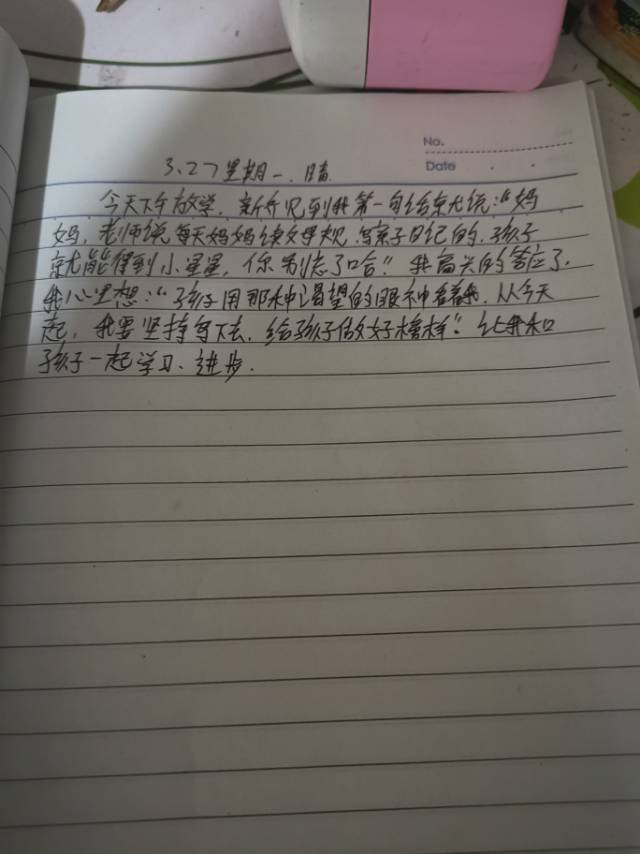 No.
Date
3.27星期一.晴
今天下午放学,新乔见到我第一句话就说:“妈
妈,老师说每天妈妈读父母规.写亲子日记的.孩子
就能得到小星星,你别忘了哈”我高兴的答应了.
我心里想:“孩子用那种渴望的眼神看着我.从今天
起,我要坚持写下去.给孩子做好榜样”.让我和
孩子一起学习、进步.